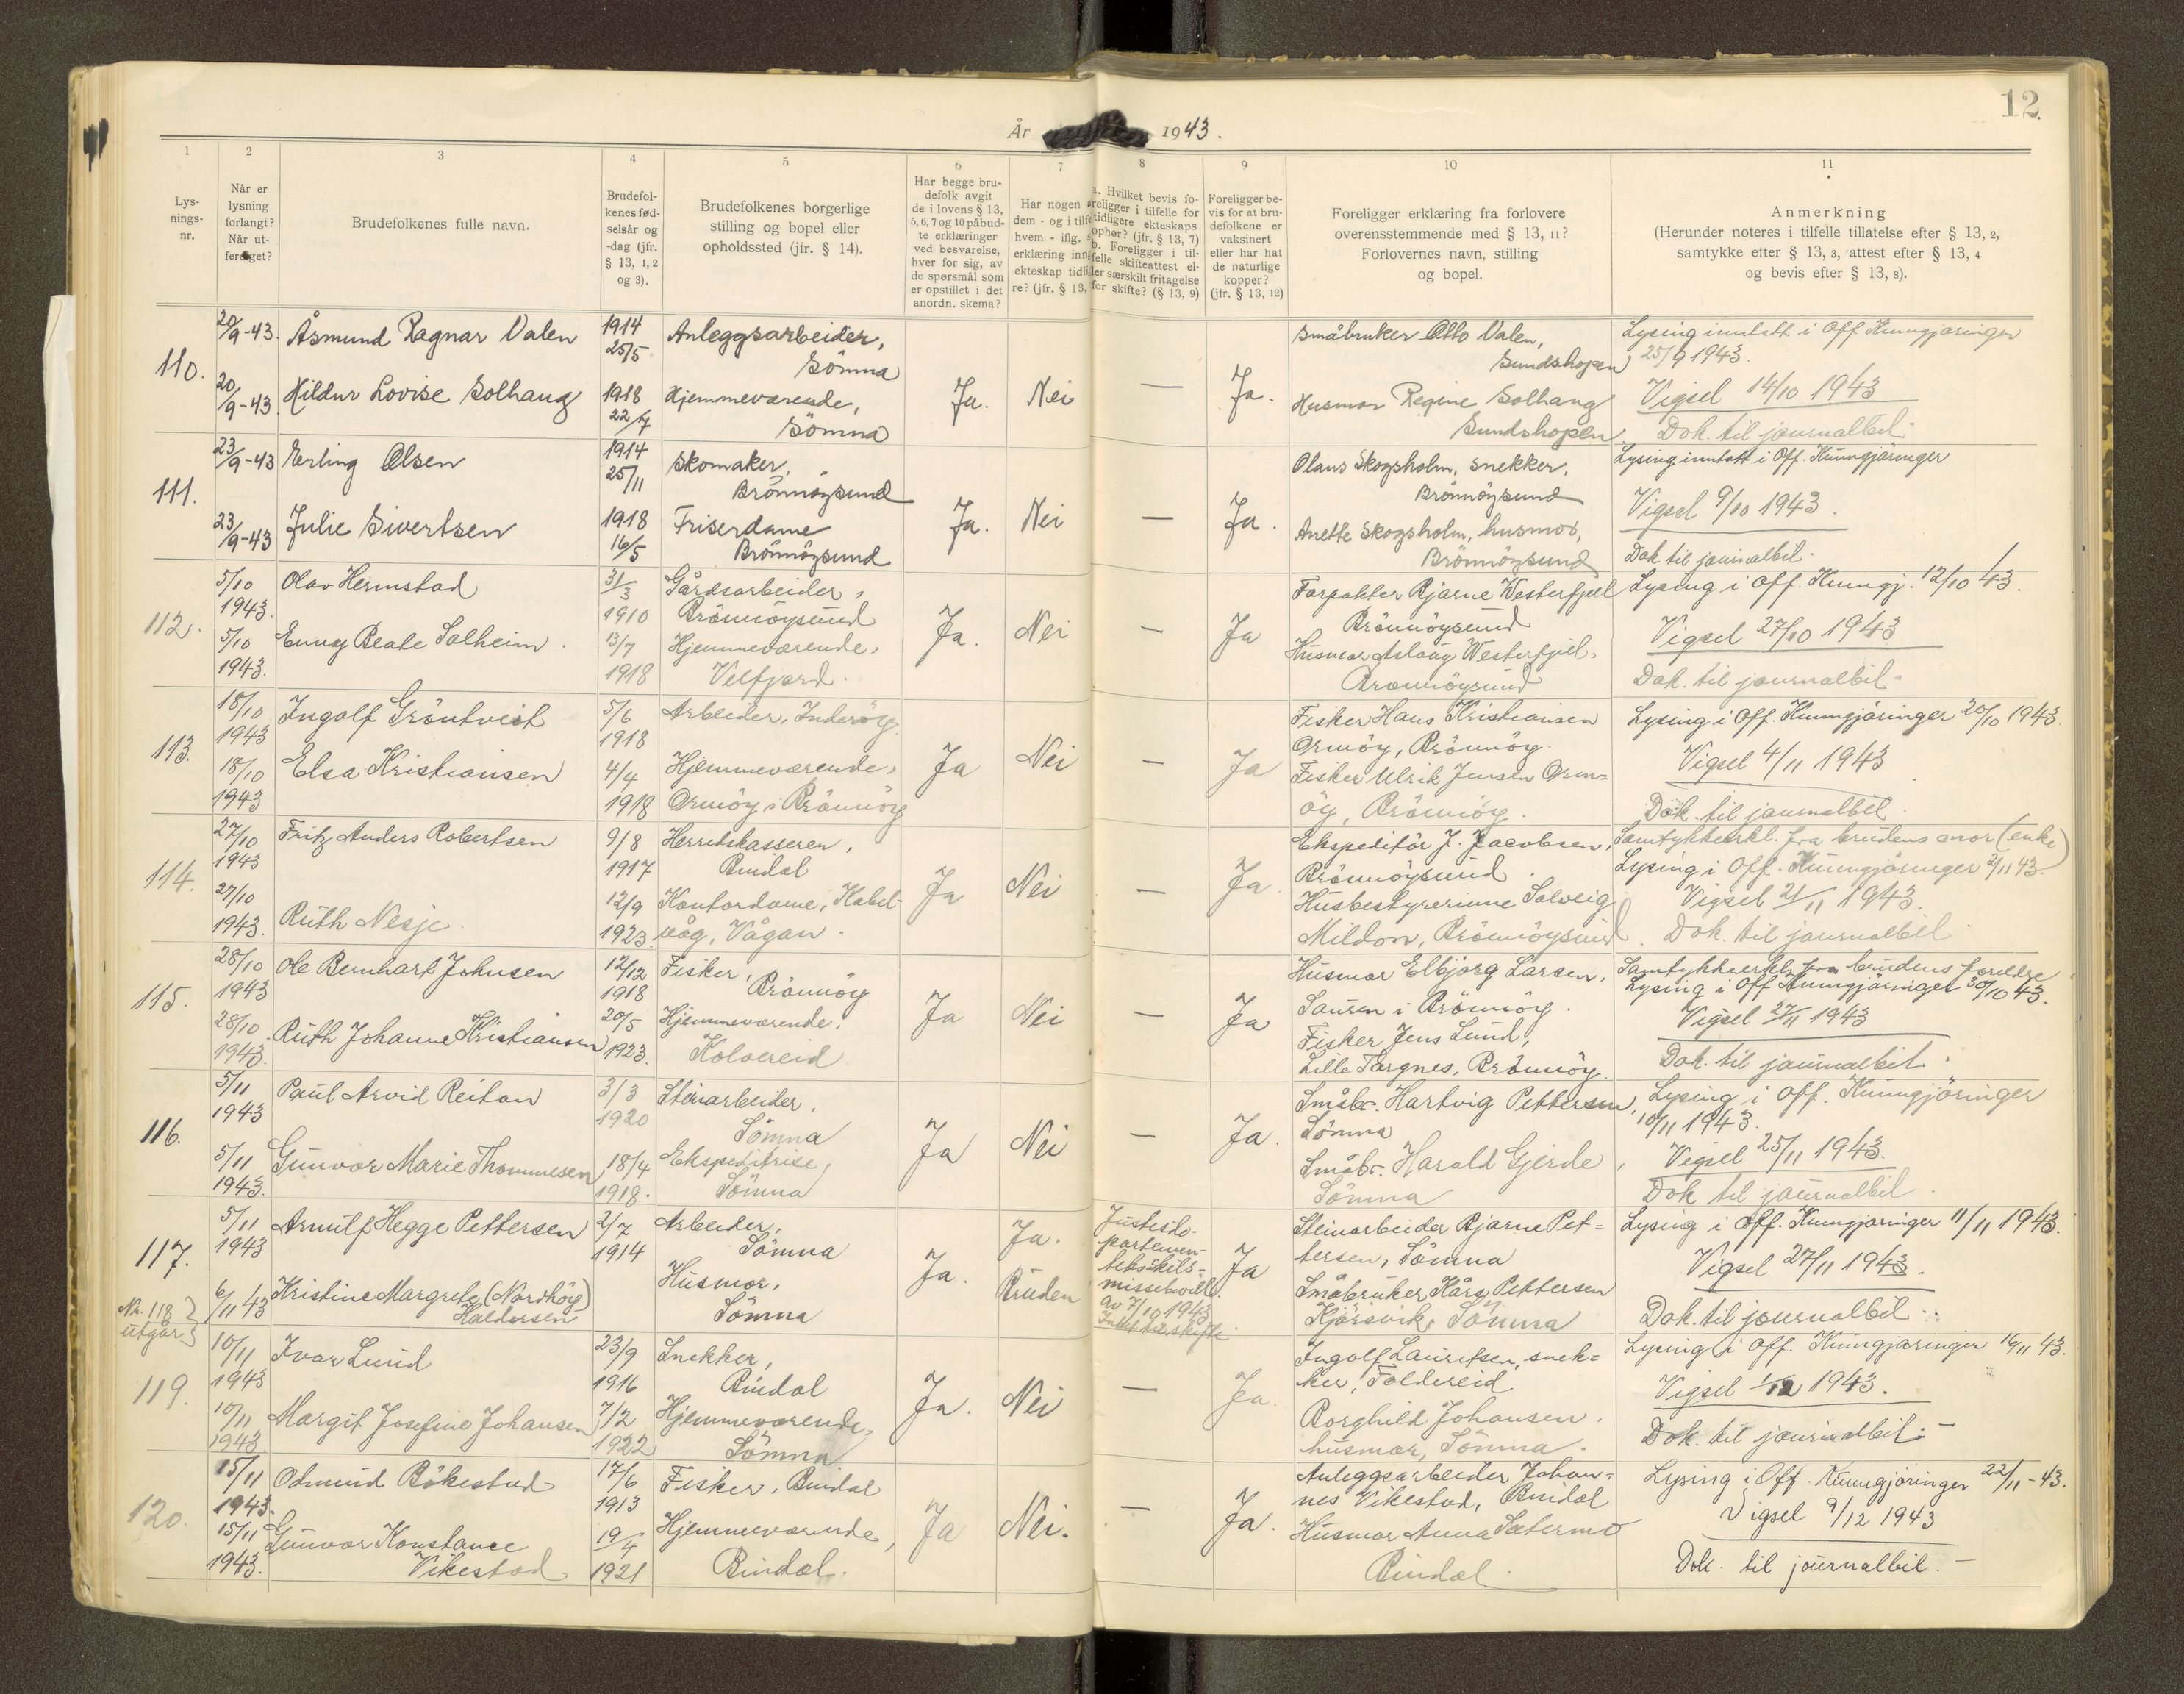 12
År 1943.
1 2 3 4 5 6 7 8 9 10 11
Lys-
nings-
nr.
Når er
lysning
forlangt?
Når ut-
ferdiget?
Brudefolkenes fulle navn.
Brudefol-
kenes fød-
selsår og
-dag (jfr.
§ 13, 1, 2
og 3).
Brudefolkenes borgerlige
stilling og bopel eller
opholdssted (jfr. § 14).
Har begge bru-
defolk avgit
de i lovens § 13,
5, 6, 7 og 10 påbud-
te erklæringer
ved besvarelse,
hver for sig, av
de spørsmål som
er opstillet i det
anordn. skema?
Har nogen
dem - og i tilf
hvem - iflg.
erklæring inn
ekteskap tidli
re? (jfr. § 13,
a. Hvilket bevis fo-
religger i tilfelle for
tidligere ekteskaps
ophør? (jfr. § 13, 7)
b. Foreligger i til-
felle skifteattest el-
ler særskilt fritagelse
for skifte? (§ 13, 9)
Foreligger be-
vis for at bru-
defolkene er
vaksinert
eller har hat
de naturlige
kopper?
(jfr. § 13, 12)
Foreligger erklæring fra forlovere
overensstemmende med § 13, 11?
Forlovernes navn, stilling
og bopel.
Anmerkning
(Herunder noteres i tilfelle tillatelse efter § 13, 2,
samtykke efter § 13, 3, attest efter § 13, 4
og bevis efter § 13, 8).
110.
20/9-43. Åsmund Ragnar Valen
1914
25/5
Anleggsarbeider,
Sömna
20/9-43 Hildur Lovise Solhaug
1918
22/7
Hjemmeværende,
Sömna
Ja. Nei — Ja.
Småbruker Otto Valen,
Sundshopen
Husmor Regine Solhaug
Sundshopen
Lysing inntatt i Off. Kunngjøringer
25/9 1943.
Vigsel 14/10 1943
Dok. til journalbil.
111.
23/9-43 Erling Olsen
1914
25/11
Skomaker,
Brönnöysund
23/9-43 Julie Sivertsen
1918
16/5
Friserdame
Brönnöysund
Ja. Nei — Ja.
Olaus Skogsholm, snekker,
Brönnöysund
Anette Skogsholm, husmor,
Brönnöysund
Lysing inntatt i Off. Kunngjøringer
Vigsel 9/10 1943.
Dok. til journalbil.
112.
5/10
1943.
Olav Hermstad
31/3
1910
Gårdsarbeider,
Brönnöysund
5/10
1943.
Enny Beate Solheim.
13/7
1918
Hjemmeværende,
Velfjord.
Ja. Nei — Ja
Forpakter Bjarne Westerfjell
Brönnöysund
Husmor Aslaug Westerfjell,
Brönnöysund
Lysing i Off. Kunngj. 12/10 43.
Vigsel 27/10 1943
Dok. til journalbil.
113.
18/10
1943
Ingolf Gröntvedt
5/6
1918
Arbeider, Inderöy
18/10
1943
Elsa Kristiansen
4/4
1918
Hjemmeværende,
Ormöy i Brönnöy
Ja Nei — Ja
Fisker Hans Kristiansen
Ormöy, Brönnöy.
Fisker Ulrik Jensen Orm=
öy, Brönnöy.
Lysing i Off. Kunngjöringer 20/10 1943.
Vigsel 4/11 1943
Dok. til journalbil.
114.
27/10
1943
Fritz Anders Robertsen
9/8
1917
Herredskasserer,
Bindal
27/10
1943.
Ruth Nesje.
12/9
1923
Kontordame, Kabel-
våg, Vågan.
Ja Nei — Ja
Ekspeditör J. Jacobsen,
Brönnöysund.
Husbestyrerinne Solveig
Mildon, Brönnöysund.
Samtykkeerkl. fra brudens mor (enke)
Lysing i Off. Kunngjöringer 2/11 43.
Vigsel 21/11 1943.
Dok. til journalbil
115.
28/10
1943
Ole Bernhart Johnsen
12/12
1918
Fisker,
Brönnöy
28/10
1943.
Ruth Johanne Kristiansen
20/5
1923.
Hjemmeværende,
Kolvereid
Ja Nei — Ja
Husmor Elbjørg Larsen,
Sauren i Brönnöy.
Fisker Jens Lund,
Lille Torgnes, Brönnöy.
Samtykkeerkl. fra brudens foreldre
Lysing i Off Kunngjöringer 30/10 43.
Vigsel 27/11 1943
Dok. til journalbil.
116.
5/11
1943
Paul Arvid Reitan
3/3
1920
Steinarbeider,
Sömna
5/11
1943.
Gunvor Marie Thommesen
18/4
1918.
Ekspeditrise,
Sömna
Ja Nei — Ja.
Småbr. Hartvig Pettersen,
Sömna
Småbr. Harald Gjerde,
Sömna
Lysing i Off. Kunngjöringer
10/11 1943.
Vigsel 25/11 1943.
Dok til journalbil.
117.
5/11
1943
Arnulf Hegge Pettersen
2/7
1914
Arbeider,
Sömna
6/11 43
Kristine Margrete (Nordhöy)
Haldorsen
Husmor,
Sömna
Ja.
Ja.
Bruden
Justisde-
partemen-
tets skils-
missebevill.
av 7/10 1943
Ja
Steinarbeider Bjarne Pet=
tersen, Sömna
Småbruker Kåre Pettersen
Kjærsvik, Sömna
Lysing i Off. Kunngjøringer 11/11 1943.
Vigsel 27/11 1943.
Dok. til journalbil
Nr. 118
utgår
119.
10/11
1943
Ivar Lund
23/9
1916
Snekker,
Bindal
10/11
1943
Margit Josefine Johansen
7/2
1922
Hjemmeværende,
Sömna
Ja. Nei — Ja.
Ingolf Lauritsen, snek=
ker, Foldereid
Borghild Johansen,
husmor, Sömna.
Lysing i Off. Kunngjøringer 16/11 43.
Vigsel 1/12 1943.
Dok. til journalbil. —
120.
15/11
1943.
Odmund Bökestad
17/6
1913
Fisker, Bindal
15/11
1943.
Gunvor Konstance
Vikestad
19/4
1921
Hjemmeværende,
Bindal.
Ja Nei. — Ja.
Anleggsarbeider Johan=
nes Vikestad, Bindal
Husmor Anna Sætermo
Bindal
Lysing i Off. Kunngjöringer 22/11-43.
Vigsel 9/12 1943
Dok. til journalbil. —